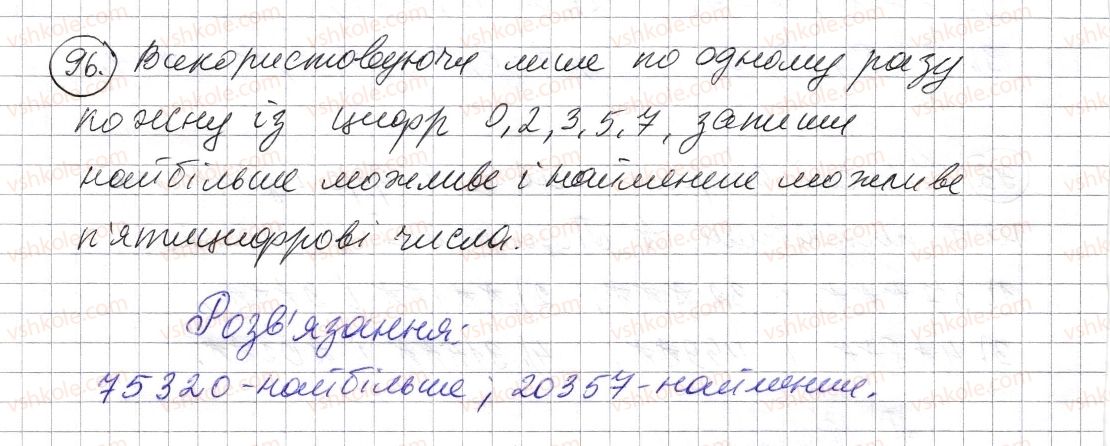 96. Використовуючи лише по одному разу
кожну із цифр 0, 2, 3, 5, 7, запиши
найбільше можливе і найменше можливе
п'ятицифрові числа.
Розв'язання:
75320-найбільше, 20357-найменше.